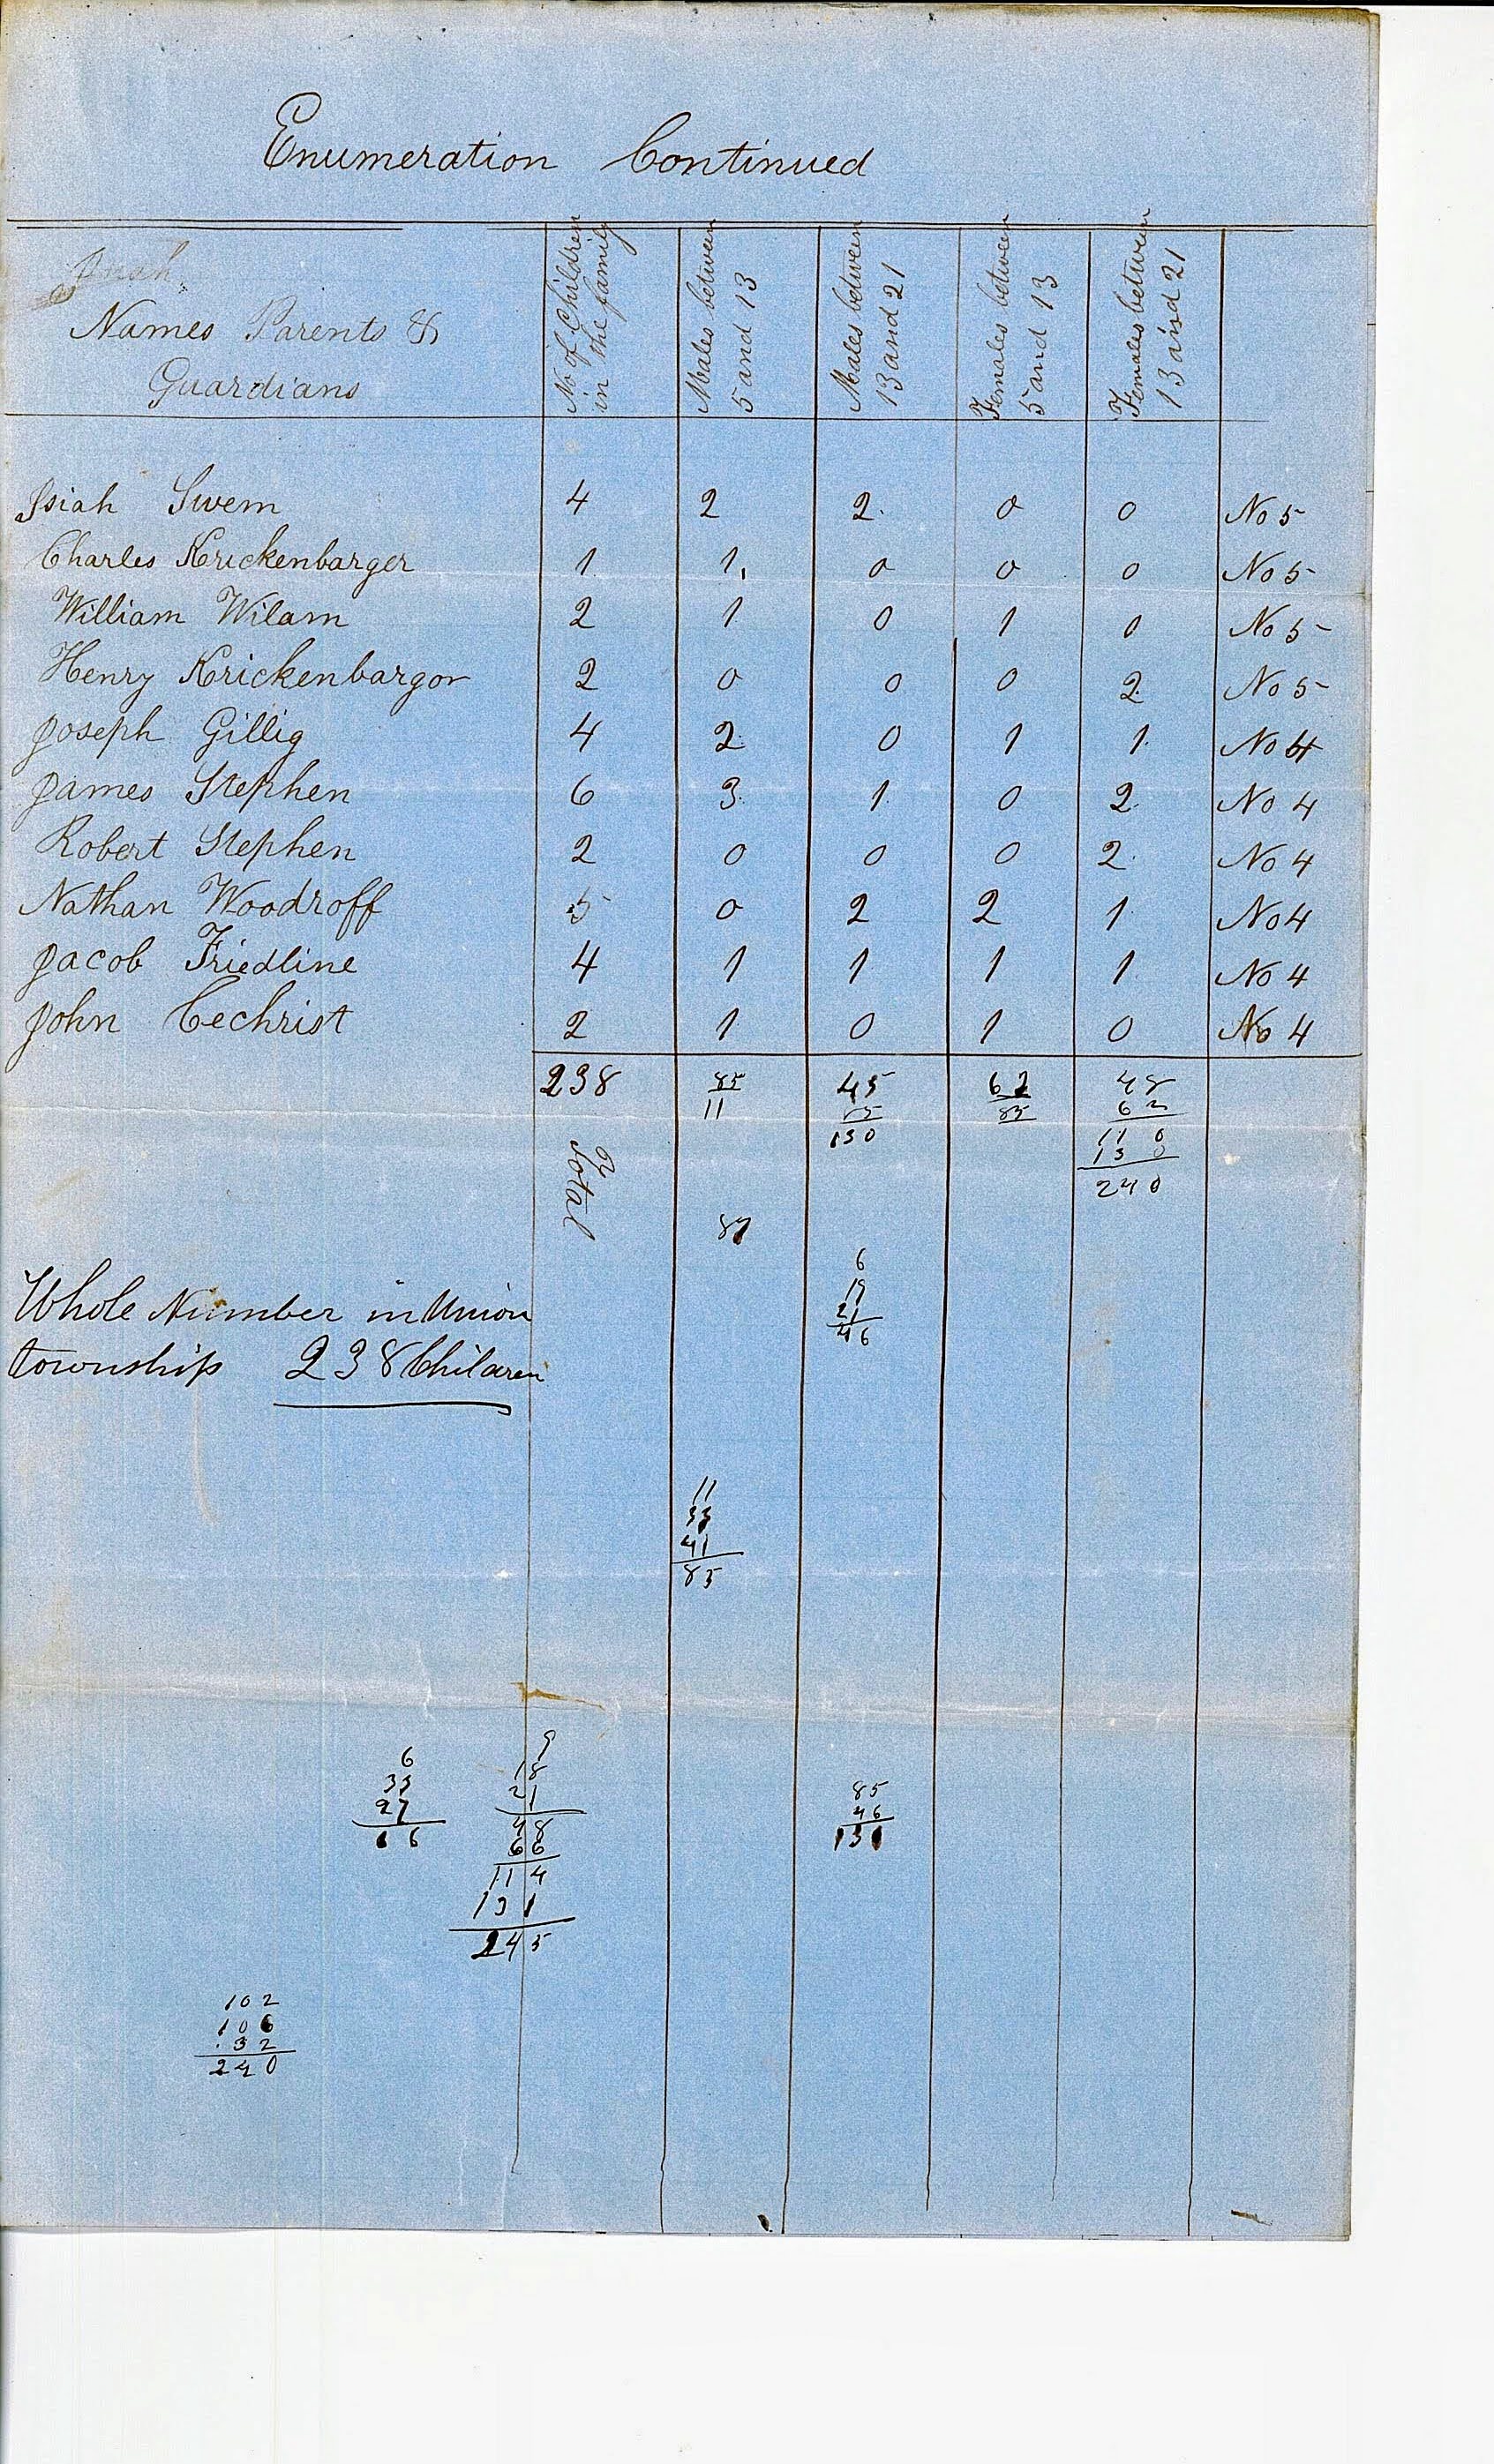 Enumeration Continued
Names Parents &
Guardians
No of Children
in the family
Males between
5 and 13
Males between
13 and 21
Females between
5 and 13
Females between
13 and 21
Isiah Swem 4 2 2 0 0 No 5
Charles Krickenbarger 1 1 0 0 0 No 5
William Wilam 2 1 0 1 0 No 5
Henry Krickenbargor 2 0 0 0 2 No 5
Joseph Gillig 4 2 0 1 1 No 4
James Stephen 6 3 1 0 2 No 4
Robert Stephen 2 0 0 0 2 No 4
Nathan Woodroff 5 0 2 2 1 No 4
Jacob Friedline 4 1 1 1 1 No 4
John Cechrist 2 1 0 1 0 No 4
238 85 45 62 48
11 85 85 62
130 110
130
240
Total
6
19
21
46
Whole Number in Union
township 238 Children
11
33
41
85
6
33
27
66
9
18
21
48
66
114
131
245
85
46
131
102
106
32
240